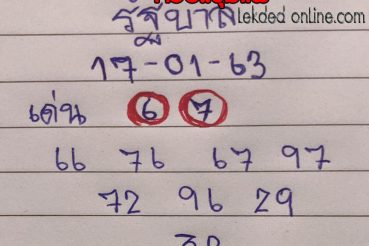 รัฐบาล
lekded online.com
17-01-63
เด่น 6 7
66 76 67 97
72 96 29